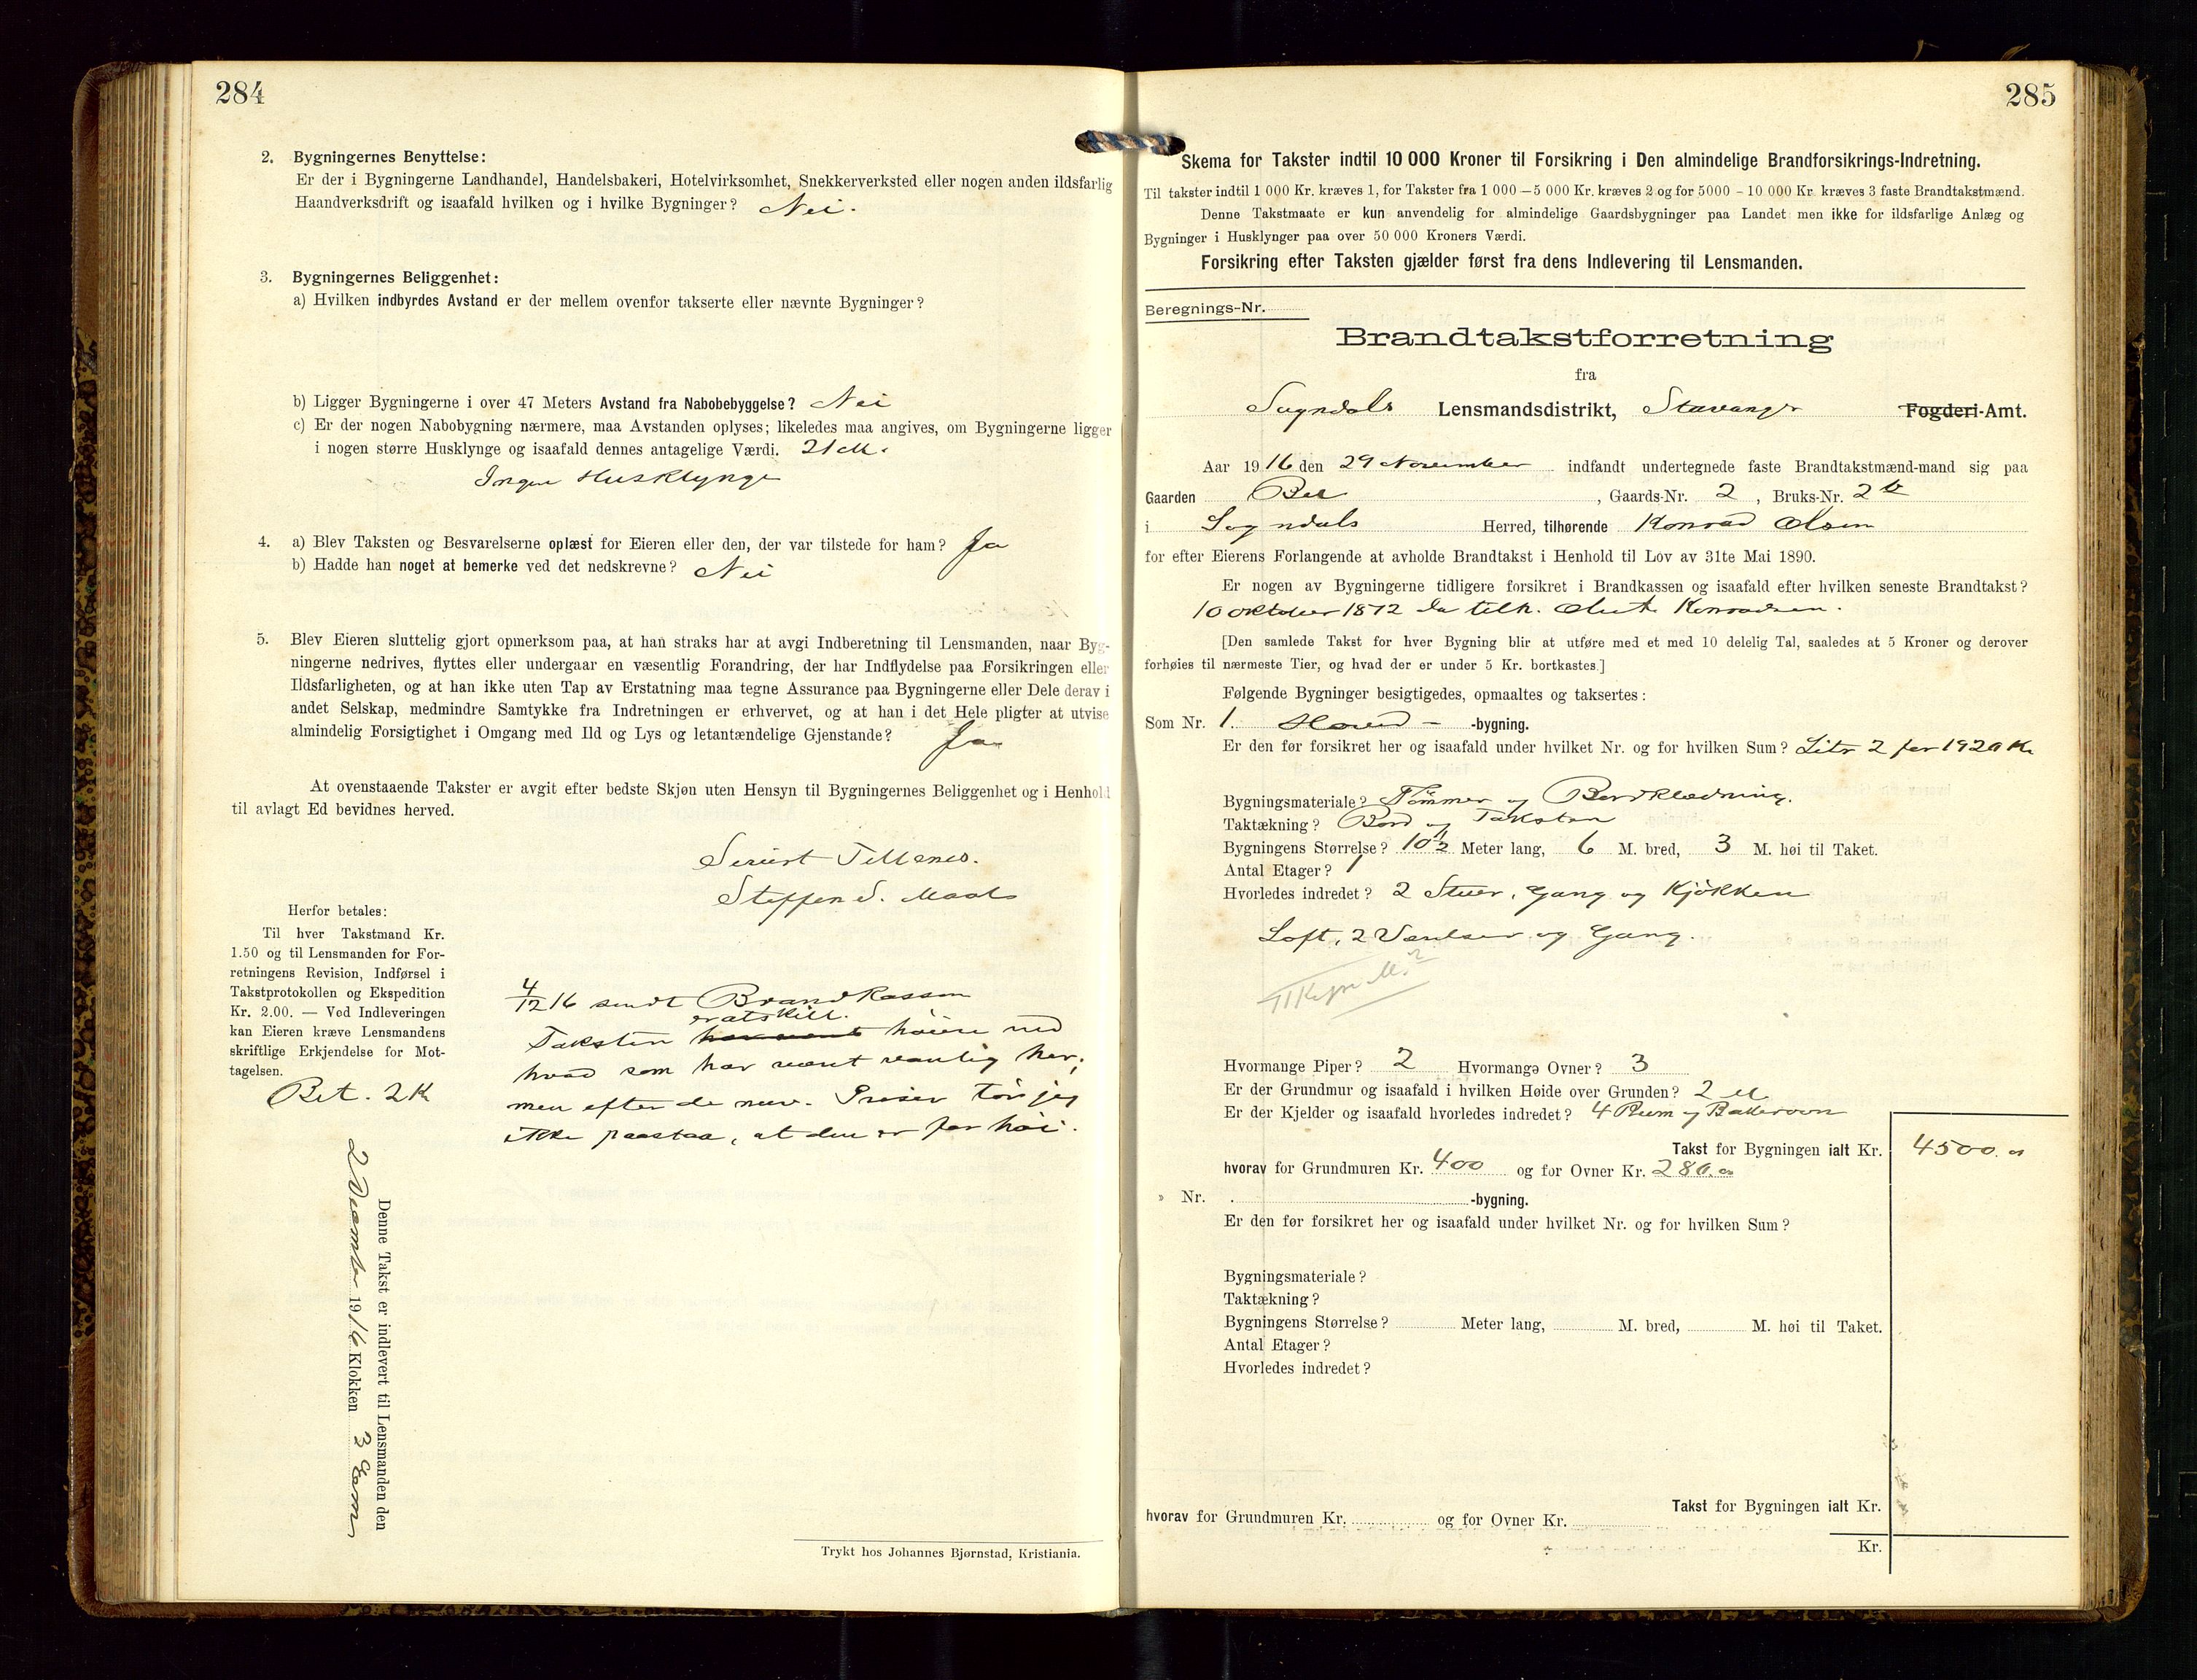 284
2. Bygningernes Benyttelse:
Er der i Bygningerne Landhandel, Handelsbakeri, Hotelvirksomhet, Snekkerverksted eller nogen anden ildsfarlig
Haandverksdrift og isaafald hvilken og i hvilke Bygninger? Nei.
3. Bygningernes Beliggenhet:
a) Hvilken indbyrdes Avstand er der mellem ovenfor takserte eller nævnte Bygninger?
b) Ligger Bygningerne i over 47 Meters Avstand fra Nabobebyggelse? Nei
c) Er der nogen Nabobygning nærmere, maa Avstanden oplyses; likeledes maa angives, om Bygningerne ligger
i nogen større Husklynge og isaafald dennes antagelige Værdi. 21 M.
Ingen Husklynge
4. a) Blev Taksten og Besvarelserne oplæst for Eieren eller den, der var tilstede for ham? Ja
b) Hadde han noget at bemerke ved det nedskrevne? Nei
5. Blev Eieren sluttelig gjort opmerksom paa, at han straks har at avgi Indberetning til Lensmanden, naar Byg-
ningerne nedrives, flyttes eller undergaar en væsentlig Forandring, der har Indflydelse paa Forsikringen eller
Ildsfarligheten, og at han ikke uten Tap av Erstatning maa tegne Assurance paa Bygningerne eller Dele derav i
andet Selskap, medmindre Samtykke fra Indretningen er erhvervet, og at han i det Hele pligter at utvise
almindelig Forsigtighet i Omgang med Ild og Lys og letantændelige Gjenstande? Ja
At ovenstaaende Takster er avgit efter bedste Skjøn uten Hensyn til Bygningernes Beliggenhet og i Henhold
til avlagt Ed bevidnes herved.
Severt Tellenes.
Steffen S.
Herfor betales:
Til hver Takstmand Kr.
1.50 og til Lensmanden for For-
retningens Revision, Indførsel i
Takstprotokollen og Ekspedition
Kr. 2.00. — Ved Indleveringen
kan Eieren kræve Lensmandens
skriftlige Erkjendelse for Mot-
tagelsen.
Bet. 2 K
4/12 16 sendt Brandkassen
er atskill.
Taksten har været høiere end
hvad som har været vanlig her;
men efter de nuv. Priser tør jeg
ikke paastaa, at den er for høi.
Denne Takst er indlevert til Lensmanden den
2 December 1916 Klokken 3 Eftm
Trykt hos Johannes Bjørnstad, Kristiania.
285
Skema for Takster indtil 10 000 Kroner til Forsikring i Den almindelige Brandforsikrings-Indretning.
Til takster indtil 1 000 Kr. kræves 1, for Takster fra 1 000 — 5 000 Kr. kræves 2 og for 5000 - 10 000 Kr kræves 3 faste Brandtakstmænd.
Denne Takstmaate er kun anvendelig for almindelige Gaardsbygninger paa Landet men ikke for ildsfarlige Anlæg og
Bygninger i Husklynger paa over 50 000 Kroners Værdi.
Forsikring efter Taksten gjælder først fra dens Indlevering til Lensmanden.
Beregnings-Nr.
Brandtakstforretning
fra
Sogndals Lensmandsdistrikt, Stavanger Fogderi-Amt.
Aar 1916 den 29 November indfandt undertegnede faste Brandtakstmænd-mand sig paa
Gaarden , Gaards-Nr. 2, Bruks-Nr. 2 b
i Sogndals Herred, tilhørende Konrad Olsen
for efter Eierens Forlangende at avholde Brandtakst i Henhold til Lov av 31te Mai 1890.
Er nogen av Bygningerne tidligere forsikret i Brandkassen og isaafald efter hvilken seneste Brandtakst?
10 oktober 1872 da tilh. Konradsen.
[Den samlede Takst for hver Bygning blir at utføre med et med 10 delelig Tal, saaledes at 5 Kroner og derover
forhøies til nærmeste Tier, og hvad der er under 5 Kr. bortkastes.]
Følgende Bygninger besigtigedes, opmaaltes og taksertes:
Som Nr. 1. Hoved- -bygning.
Er den før forsikret her og isaafald under hvilket Nr. og for hvilken Sum? Litr 2 for 1920 Kr
Bygningsmateriale? Tømmer og Bordklædning.
Taktækning? Bord og Taksten
Bygningens Størrelse? 10 1/2 Meter lang, 6 M. bred, 3 M. høi til Taket.
Antal Etager? 1
Hvorledes indredet? 2 Stuer, Gang og Kjøkken
Loft, 2 Værelser og Gang.
Hvormange Piper? 2 Hvormange Ovner? 3
Er der Grundmur og isaafald i hvilken Høide over Grunden? 2 M
Er der Kjelder og isaafald hvorledes indredet? 4 Rum og Bakerovn
Takst for Bygningen ialt Kr. 4500.00
hvorav for Grundmuren Kr. 400 og for Ovner Kr. 280.00
» Nr. . -bygning.
Er den før forsikret her og isaafald under hvilket Nr. og for hvilken Sum?
Bygningsmateriale?
Taktækning?
Bygningens Størrelse? Meter lang, M. bred, M. høi til Taket.
Antal Etager?
Hvorledes indredet?
Takst for Bygningen ialt Kr.
hvorav for Grundmuren Kr. og for Ovner Kr.
Kr.